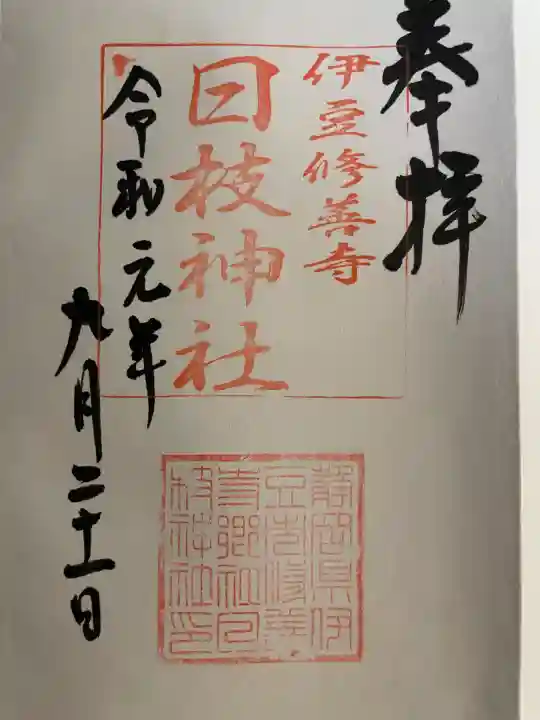 奉拝
伊豆修善寺
日枝神社
令和元年
九月二十一日
静岡県伊
豆市修善
寺郷社日
枝神社印